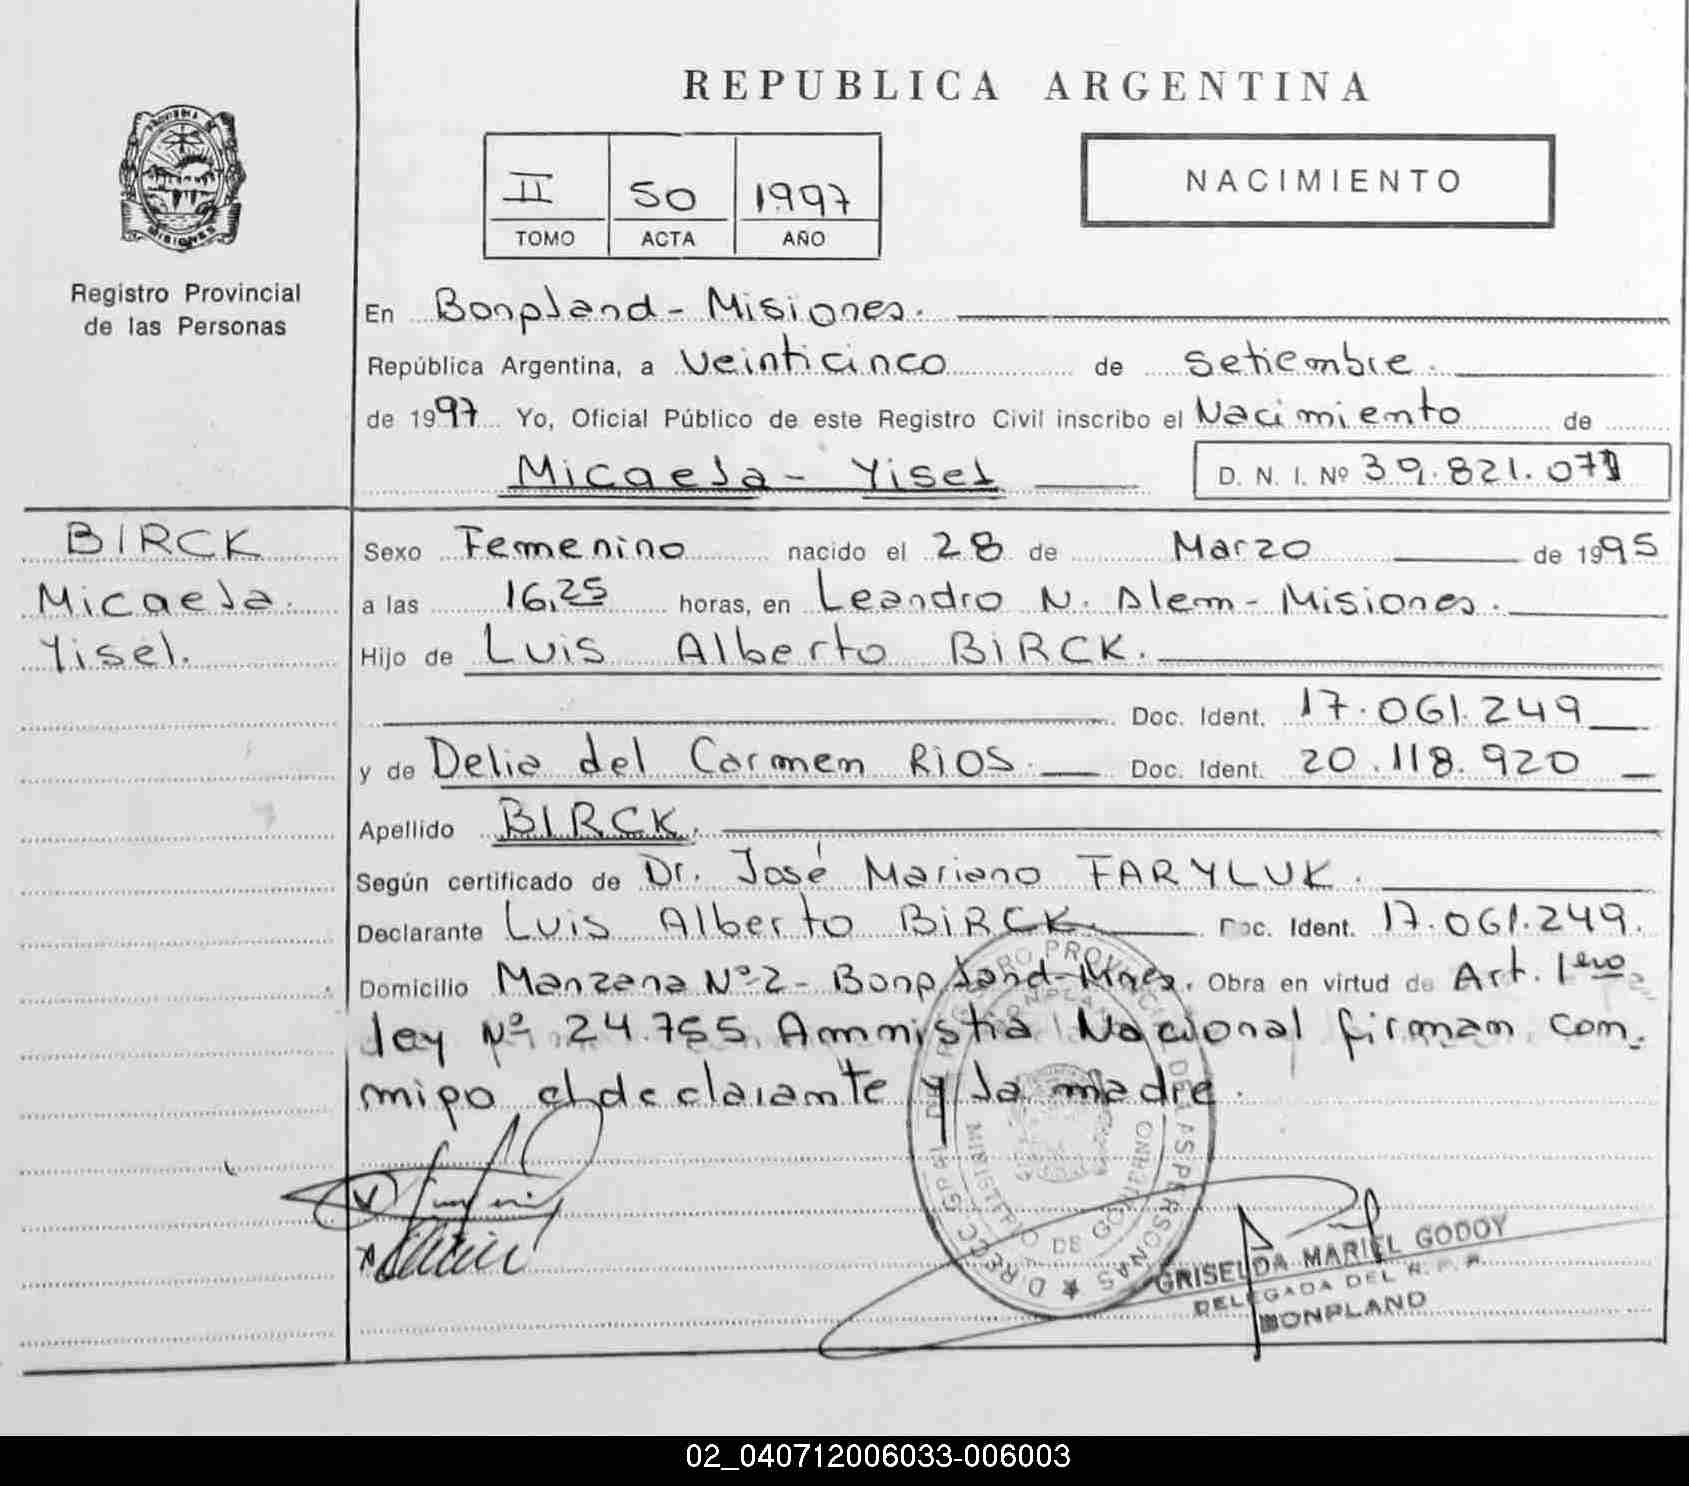 REPUBLICA ARGENTINA
PROVINCIA DE
MISIONES
Registro Provincial
de las Personas
II 50 1997
TOMO ACTA AÑO
NACIMIENTO
En Bonpland - Misiones.
República Argentina, a Veinticinco de Setiembre.
de 1997 Yo, Oficial Público de este Registro Civil inscribo el Nacimiento de
Micaela - Yisel D. N. I. Nº 39.821.071
BIRCK
Micaela.
Yisel.
Sexo Femenino nacido el 28 de Marzo de 1995
a las 16,25 horas, en Leandro N. Alem - Misiones.
Hijo de Luis Alberto BIRCK.
Doc. Ident. 17.061.249
y de Delia del Carmen RIOS. Doc. Ident. 20.118.920
Apellido BIRCK.
Según certificado de Dr. José Mariano FARYLUK.
Declarante Luis Alberto BIRCK. Doc. Ident. 17.061.249.
Domicilio Manzana Nº 2 - Bonpland - Mnes. Obra en virtud de Art. 1ero
ley Nº 24.755 Amnistia Nacional firman con-
migo el declarante y la madre.
MINISTERIO DE GOBIERNO
GRISELDA MARIEL GODOY
DELEGADA DEL R. P. P.
BONPLAND
02_040712006033-006003